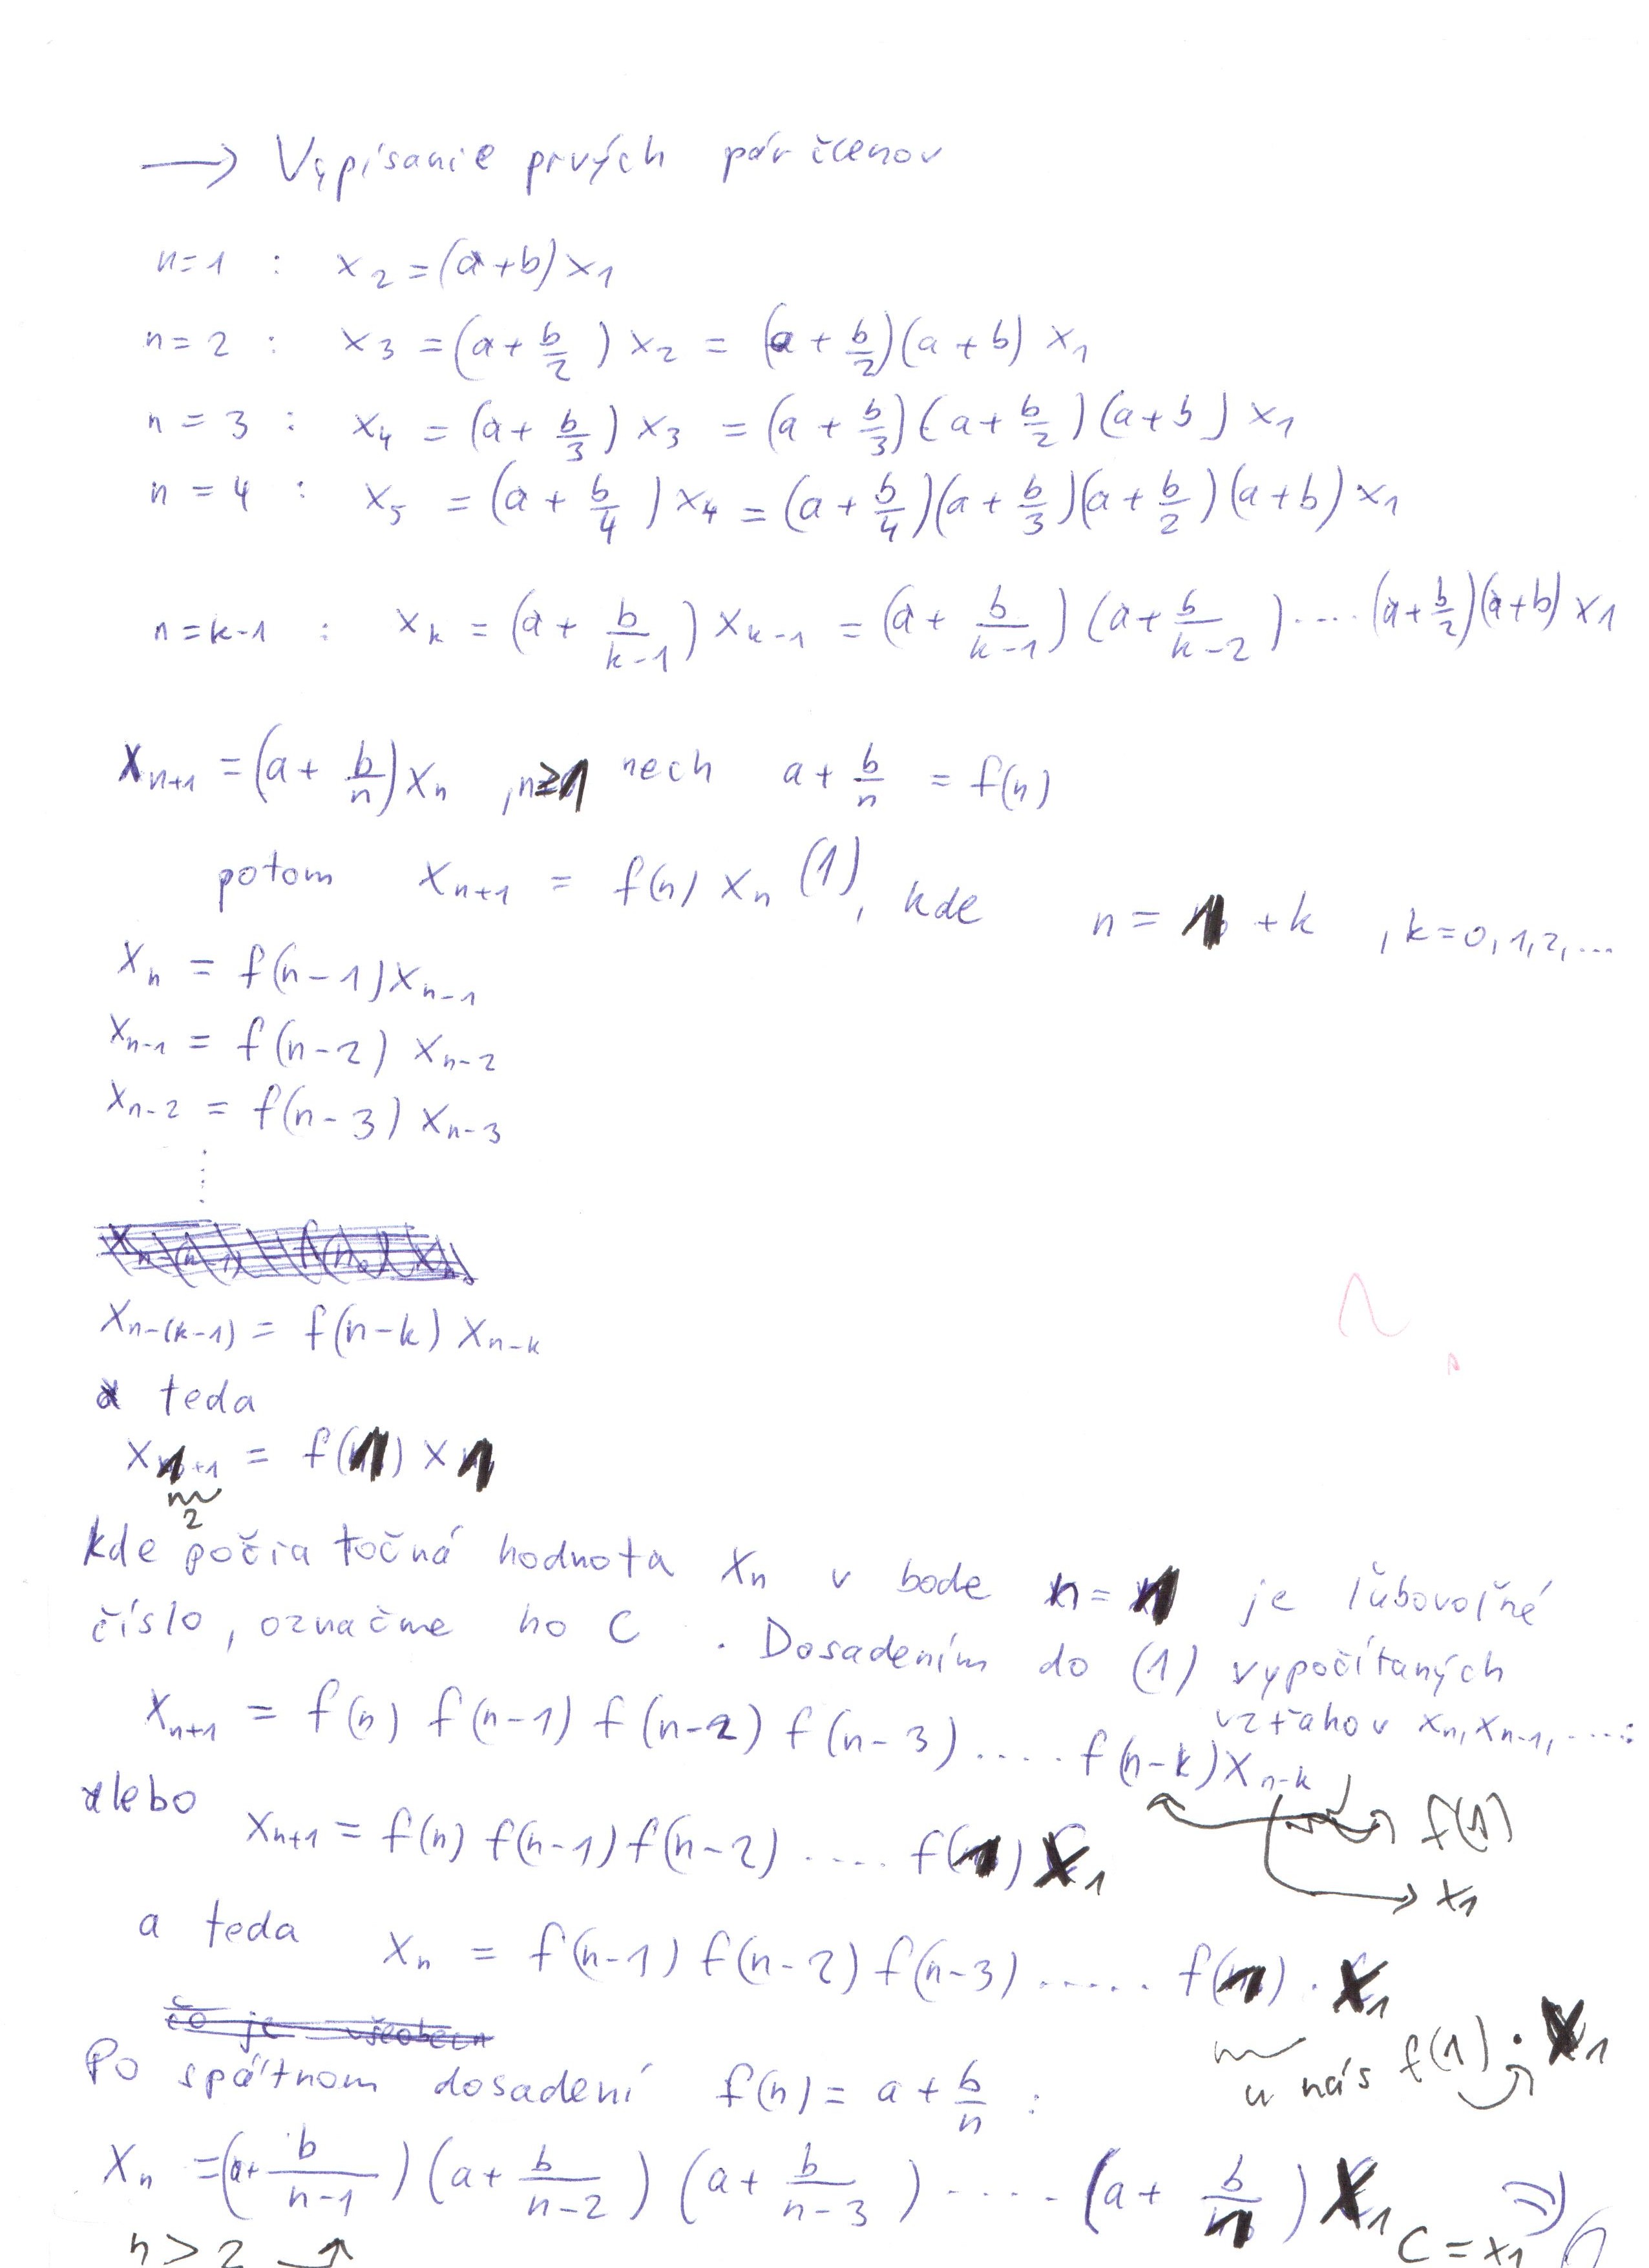 → Vypísanie prvých pár členov
n=1 : x₂ = (a+b) x₁
n=2 : x₃ = (a + b/2) x₂ = (a + b/2)(a + b) x₁
n = 3 : x₄ = (a + b/3) x₃ = (a + b/3)(a + b/2)(a+b) x₁
n = 4 : x₅ = (a + b/4) x₄ = (a + b/4)(a + b/3)(a + b/2)(a+b) x₁
n = k-1 : xₖ = (a + b/(k-1)) xₖ₋₁ = (a + b/(k-1)) (a + b/(k-2)) ..... (a + b/2)(a+b) x₁
xₙ₊₁ = (a + b/n) xₙ , n≥1 nech a + b/n = f(n)
potom xₙ₊₁ = f(n) xₙ (1), kde n = 1 + k , k=0,1,2,...
xₙ = f(n-1) xₙ₋₁
xₙ₋₁ = f(n-2) xₙ₋₂
xₙ₋₂ = f(n-3) xₙ₋₃
⋮
xₙ₋₍ₖ₋₁₎ = f(n-k) xₙ₋ₖ
a teda
x₁₊₁ = f(1) x₁
2
kde počiatočná hodnota xₙ v bode n = 1 je ľubovoľné
číslo, označme ho C . Dosadením do (1) vypočítaných
vzťahov xₙ, xₙ₋₁, ....:
xₙ₊₁ = f(n) f(n-1) f(n-2) f(n-3) ..... f(n-k) xₙ₋ₖ
→ f(1)
alebo xₙ₊₁ = f(n) f(n-1) f(n-2) ..... f(1) x₁
→ x₁
a teda xₙ = f(n-1) f(n-2) f(n-3) ..... f(1) . x₁
čo je všeobecn
u nás f(1) . x₁
Po spätnom dosadení f(n) = a + b/n :
xₙ = (a + b/(n-1)) (a + b/(n-2)) (a + b/(n-3)) ..... (a + b/1) x₁
n > 2 C = x₁